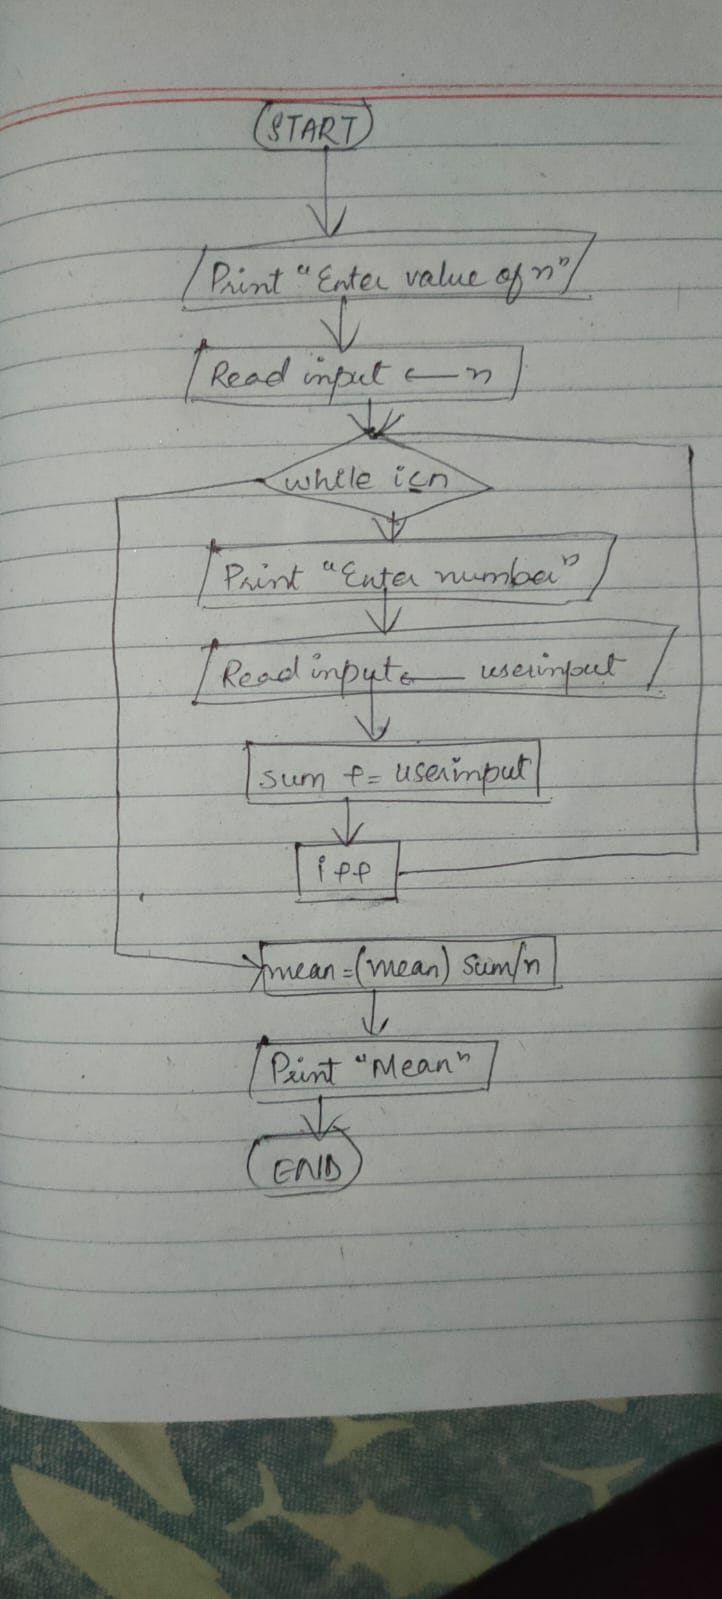 START
Print "Enter value of n"
Read input ← n
while i<n
Print "Enter number"
Read input ← userinput
sum += userinput
i++
mean = (mean) sum/n
Print "Mean"
END